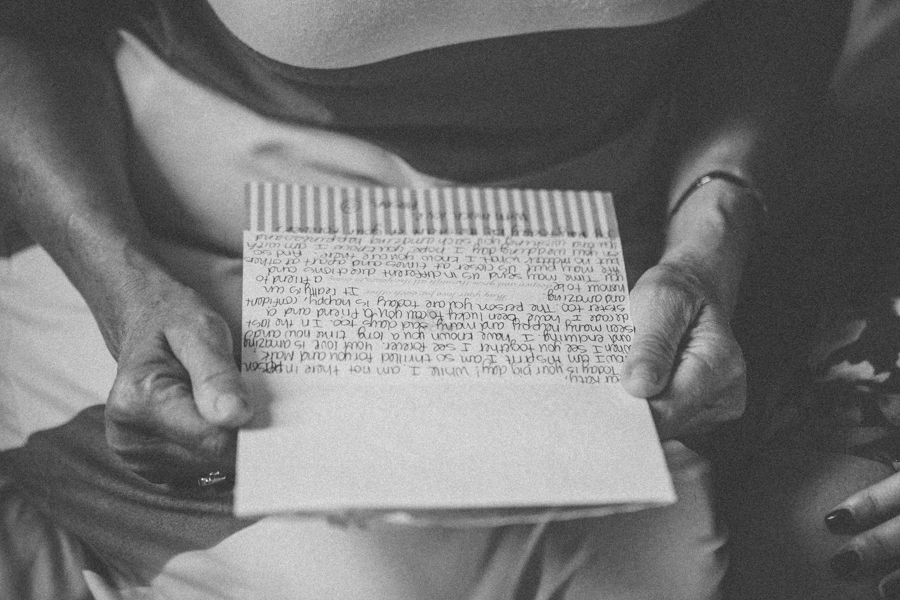 ar Katy,
Today is your big day! While I am not there in person
I am in spirit. I am so thrilled for you and Mark.
When I see you together I see forever. Your love is amazing
and enduring. I have known you a long time now and
seen many happy and many sad days too. In the last
decade I have been lucky to call you a friend and a
sister too. The person you are today is happy, confident
and amazing. It really is an
honour to be a friend to
you. Time may send us in different directions and
life may pull us closer at times and apart at others
but no matter what I know you are there. And so
on your wedding day I hope you know I am with
you and wishing you such amazing happiness and
man of your
With much love